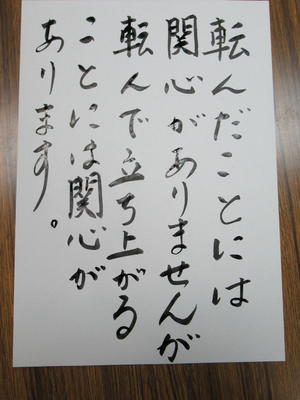 転んだことには
関心がありませんが
転んで立ち上がる
ことには関心が
あります。